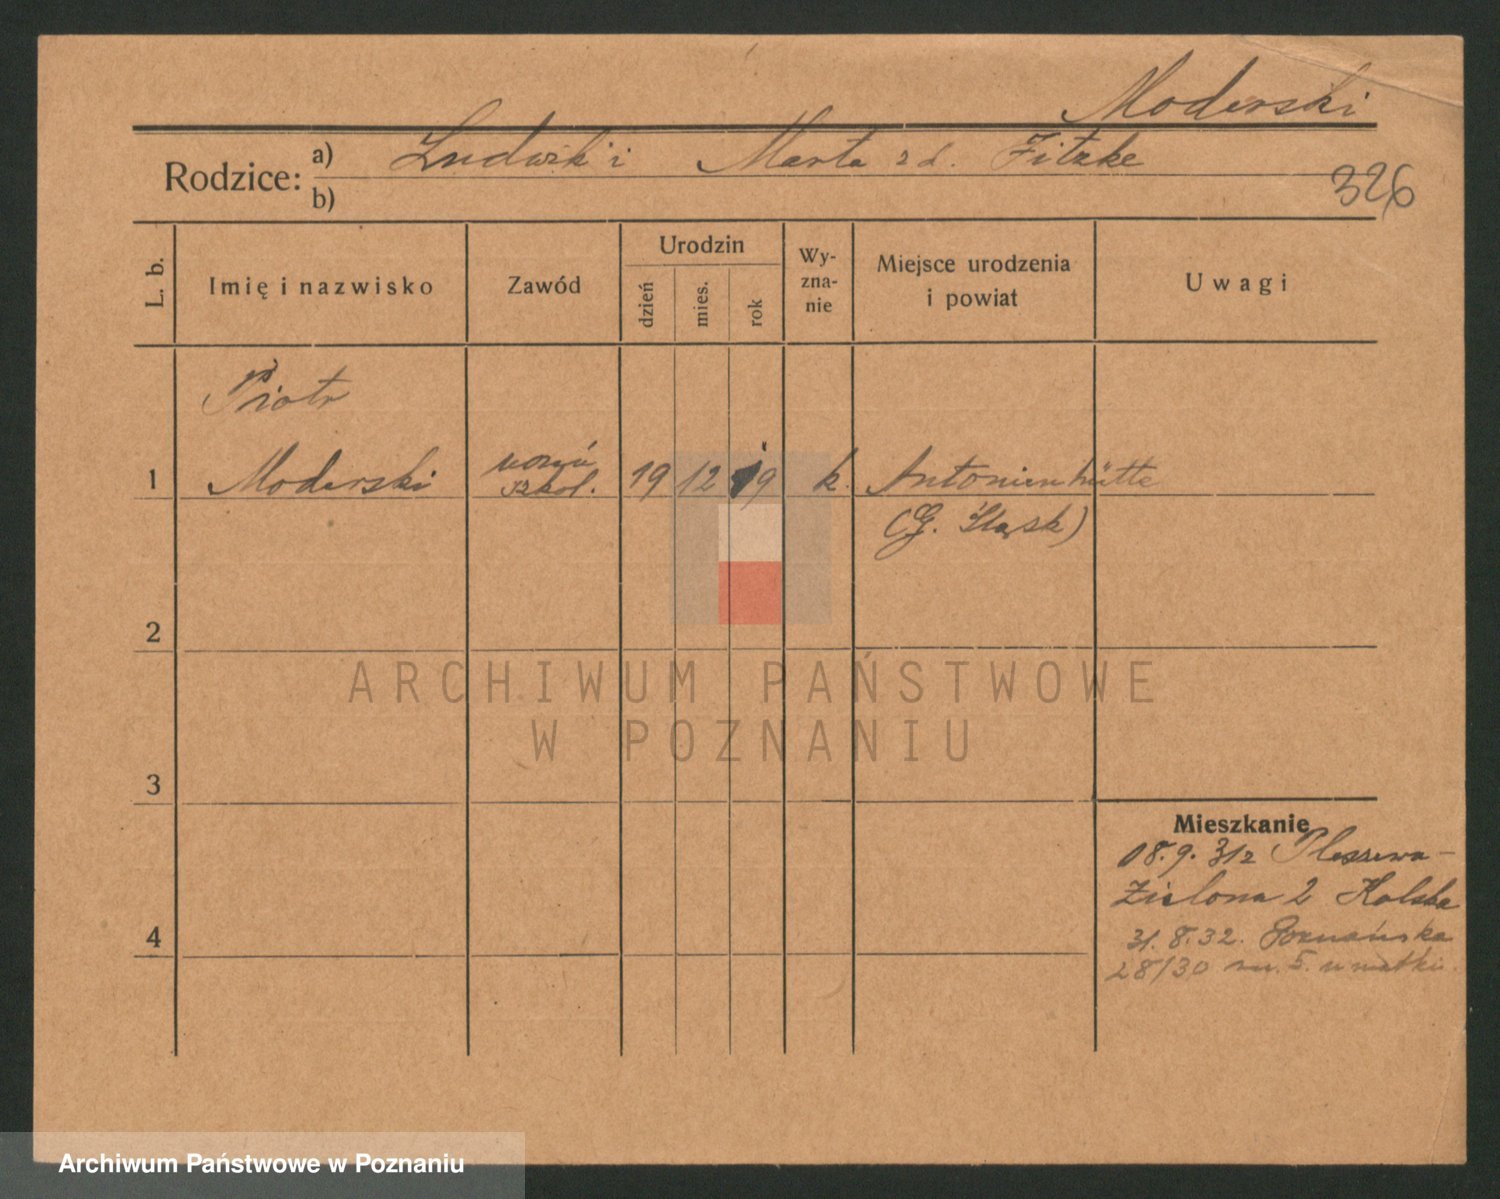 Moderski
Rodzice: a) Ludwik i Marta z d. Fitzke
b)
326
L. b.
Imię i nazwisko
Zawód
Urodzin
dzień
mies.
rok
Wy-
zna-
nie
Miejsce urodzenia
i powiat
Uwagi
Piotr
1 Moderski uczeń szkol. 19 12 19 k. Antonienhütte
(G. Śląsk)
2
3
4
Mieszkanie
08.9.31 z Pleszewa-
Zielona 2 Kolska
31.8.32. Poznańska
28/30 m. 5. u matki
ARCHIWUM PAŃSTWOWE
W POZNANIU
Archiwum Państwowe w Poznaniu